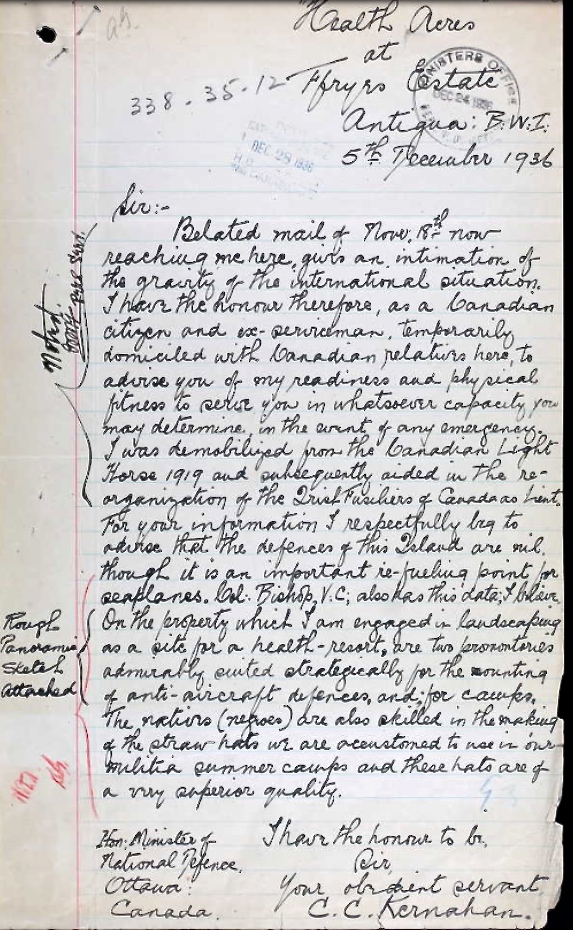 Health Acres
at
Ffryes Estate
338-35-12
MINISTERS OFFICE
DEC 24 1936
DEC 28 1936
Antigua: B.W.I.
5th December 1936
Sir:-
Belated mail of Nove. 18th now
reaching me here, gives an intimation of
the gravity of the international situation.
I have the honour therefore, as a Canadian
citizen and ex-serviceman, temporarily
domiciled with Canadian relatives here, to
advise you of my readiness and physical
fitness to serve you in whatsoever capacity, you
may determine, in the event of any emergency.
I was demobilized from the Canadian Light
Horse 1919 and subsequently aided in the re-
organization of the Irish Fusiliers of Canada as Lieut.
For your information I respectfully beg to
advise that the defences of this Island are nil,
though it is an important re-fueling point for
seaplanes. Col. Bishop, V.C; also has this data, I believe.
On the property which I am engaged in landscaping
as a site for a health-resort, are two promontories
admirably suited strategically for the mounting
of anti-aircraft defences, and, for camps.
The natives (negroes) are also skilled in the making
of the straw-hats we are accustomed to use in our
militia summer camps and these hats are of
a very superior quality.
Noted.
Rough
Panoramic
Sketch
Attached
Hon. Minister of
National Defence,
Ottawa:
Canada.
I have the honour to be,
Sir,
Your obedient servant
C. C. Kernahan.